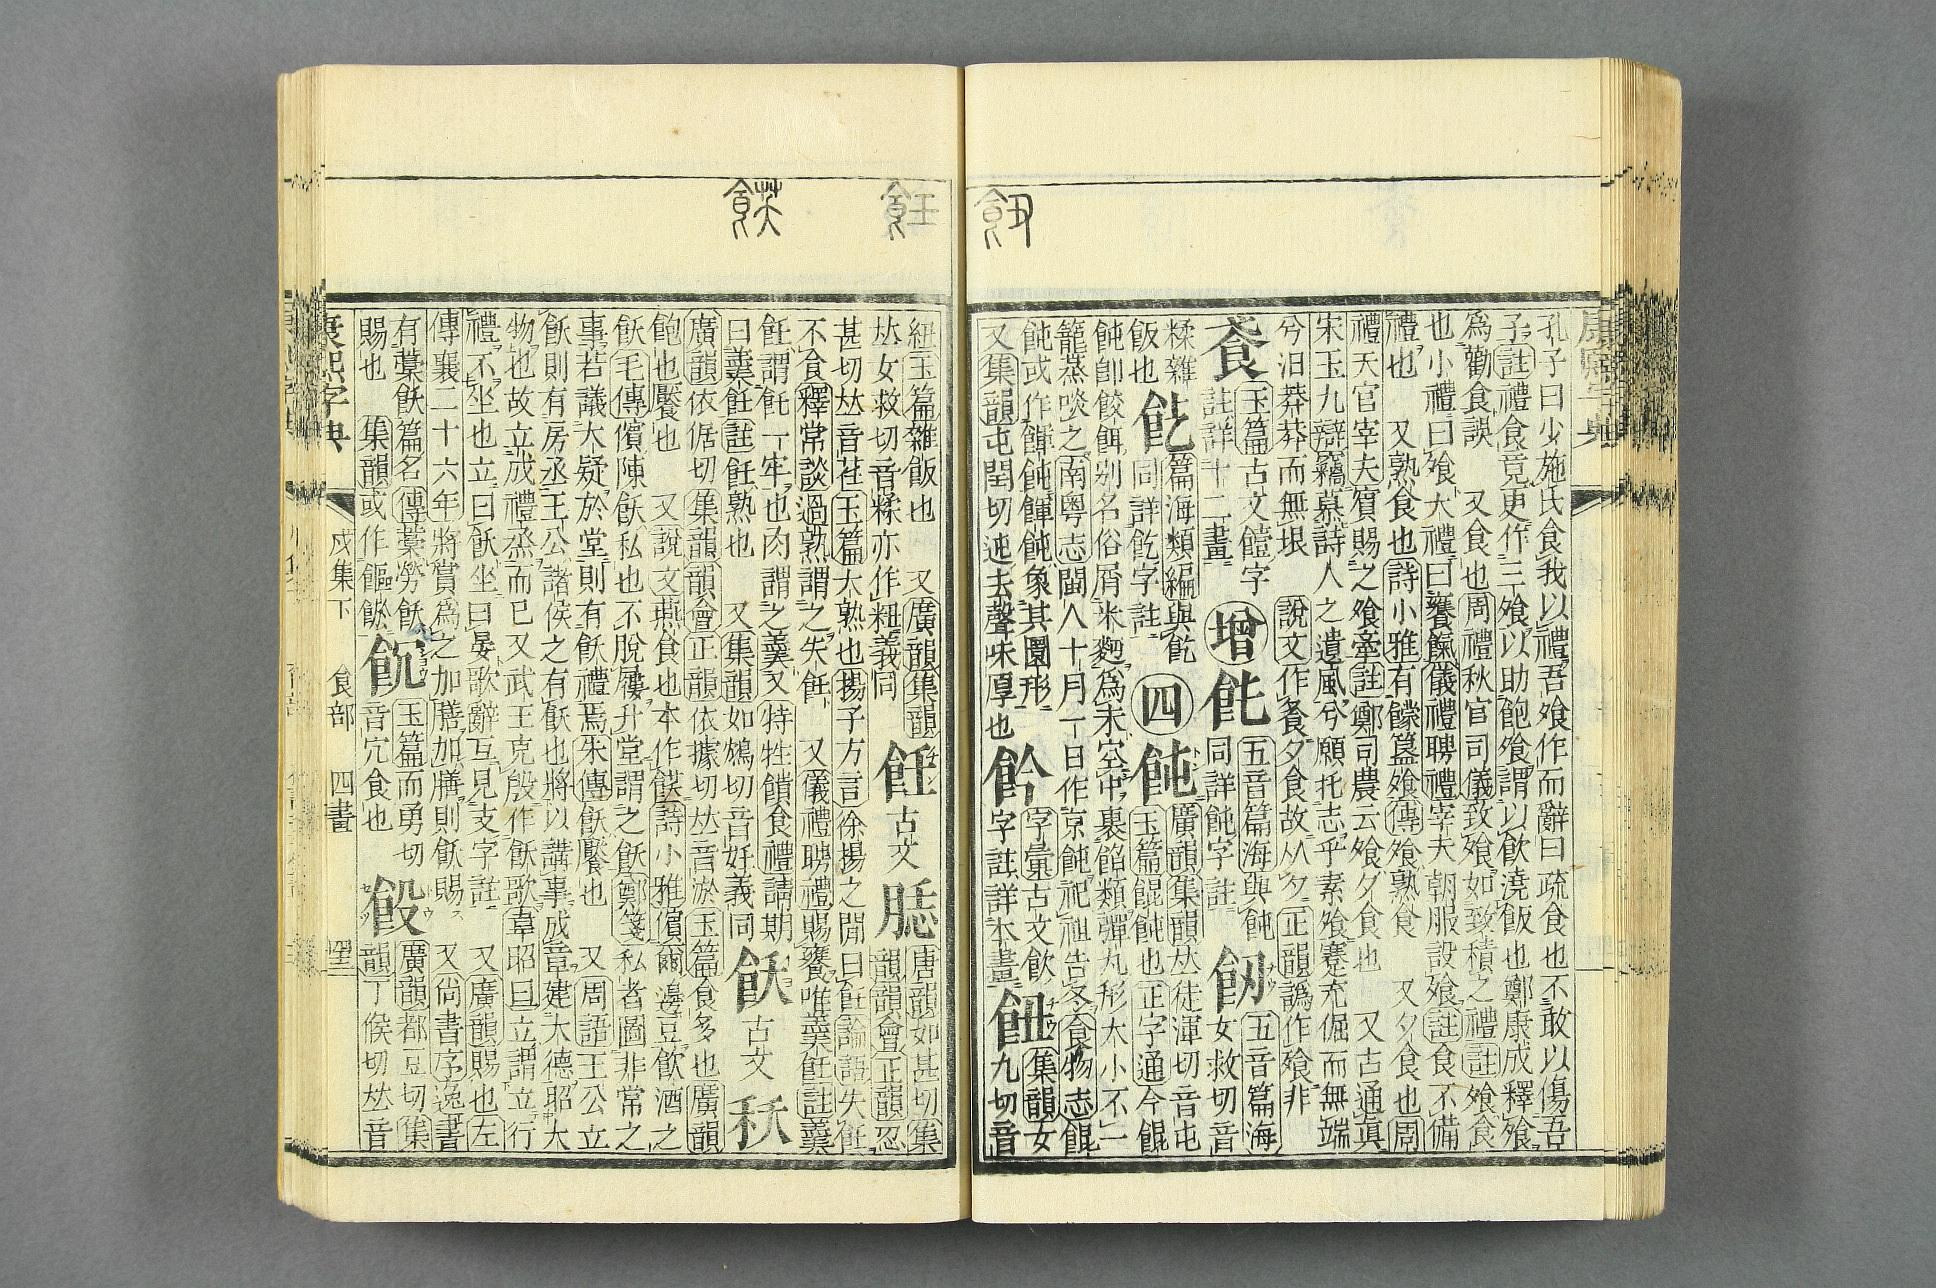 孔子曰少施氏食我以禮吾飧作而辭曰疏食也不敢以傷吾
子註禮食竟更作三飧以助飽飧謂以飲澆飯也鄭康成釋飧
爲勸食誤 又食也周禮秋官司儀致飧如致積之禮註飧食
也小禮曰飧大禮曰饔餼儀禮聘禮宰夫朝服設飧註食不備
禮也 又熟食也詩小雅有饛簋飧傳飧熟食 又夕食也周
禮天官宰夫賓賜之飧牽註鄭司農云飧夕食也 又古通眞
宋玉九辯竊慕詩人之遺風兮願托志乎素飧蹇充倔而無端
兮汨莽莽而無垠 說文作餐夕食故从夕正韻譌作飱非
飡
玉篇古文饐字
註詳十二畫
增
飥
五音篇海與飩
同詳飩字註
𩚖
五音篇海
女救切音
糅雜
飯也
飢
篇海類編與飢
同詳飢字註
四
飩
廣韻集韻𠀤徒渾切音屯
玉篇餛飩也正字通今餛
飩卽餃餌别名俗屑米麪爲末空中裹餡類彈丸形大小不一
籠蒸啖之南粤志閩人十月一日作京飩祀祖告冬食物志餛
飩或作餫飩餫飩象其圜形
又集韻屯閏切迍去聲味厚也
飮
字彙古文飮
字註詳本畫
飷
集韻女
九切音
紐玉篇雜飯也 又廣韻集韻
𠀤女救切音糅亦作粈義同
飪
古文
𦛼
唐韻如甚切集
韻韻會正韻忍
甚切𠀤音荏玉篇大熟也揚子方言徐揚之閒曰飪論語失飪
不食釋常談過熟謂之失飪 又儀禮聘禮賜饔唯羹飪註羹
飪謂飪一牢也肉謂之羹又特牲饋食禮請期
曰羹飪註飪熟也 又集韻如鴆切音妊義同
飫
古文
䄏
廣韻依倨切集韻韻會正韻依據切𠀤音淤玉篇食多也廣韻
飽也饜也 又說文燕食也本作䬵詩小雅儐爾籩豆飲酒之
飫毛傳儐陳飫私也不脫屨升堂謂之飫鄭箋私者圖非常之
事若議大疑於堂則有飫禮焉朱傳飫饜也 又周語王公立
飫則有房烝王公諸侯之有飫也將以講事成章建大德昭大
物也故立成禮烝而已又武王克殷作飫歌韋昭曰立謂立行
禮不坐也立曰飫坐曰宴歌辭互見支字註 又廣韻賜也左
傳襄二十六年將賞爲之加膳加膳則飫賜 又尙書序逸書
有藁飫篇名傳藁勞飫
賜也 集韻或作䬔
䬪
玉篇而勇切
音宂食也
䬦
廣韻都豆切集
韻丁候切𠀤音
康熙字典 戌集下 食部 四畫